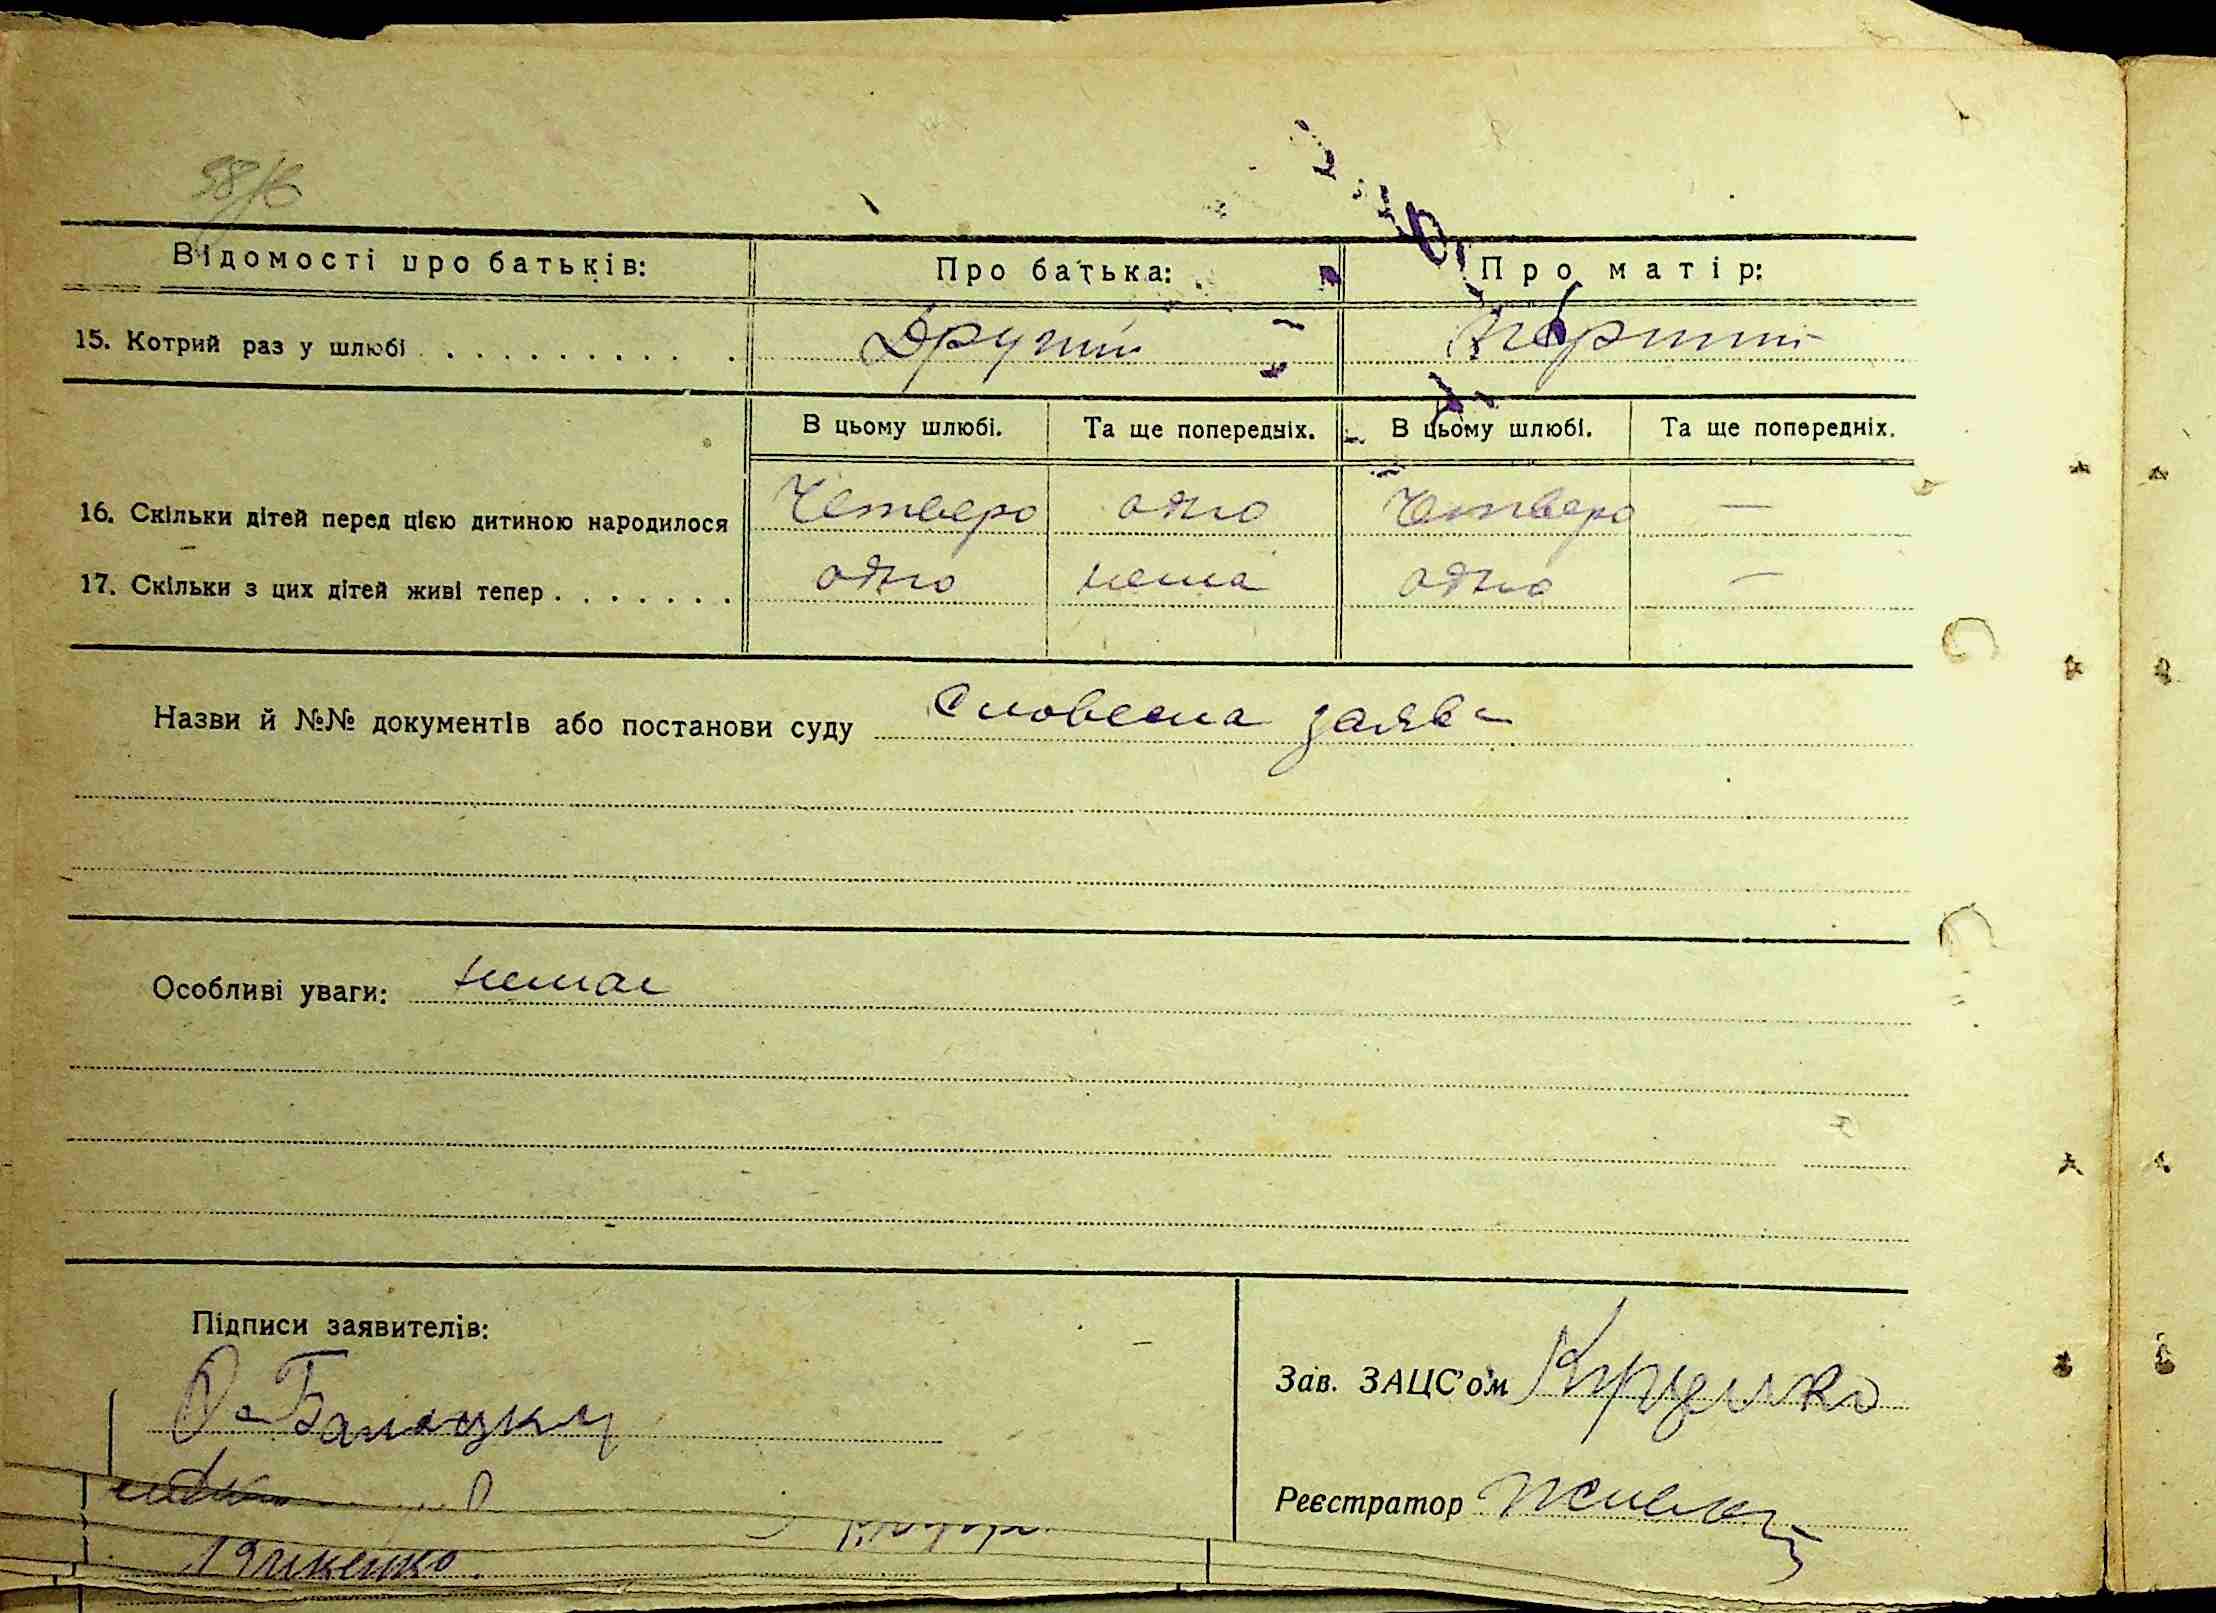 Відомості про батьків: Про батька: Про матір:
15. Котрий раз у шлюбі . . . . . . . . . . Другий Перший
В цьому шлюбі. Та ще попередніх. В цьому шлюбі. Та ще попередніх.
16. Скільки дітей перед цією дитиною народилося Четверо одно Четверо —
17. Скільки з цих дітей живі тепер . . . . . . . одно нема одно —
Назви й №№ документів або постанови суду Словесна заява
Особливі уваги: немає
Підписи заявителів:
Зав. ЗАЦС'ом
Реєстратор